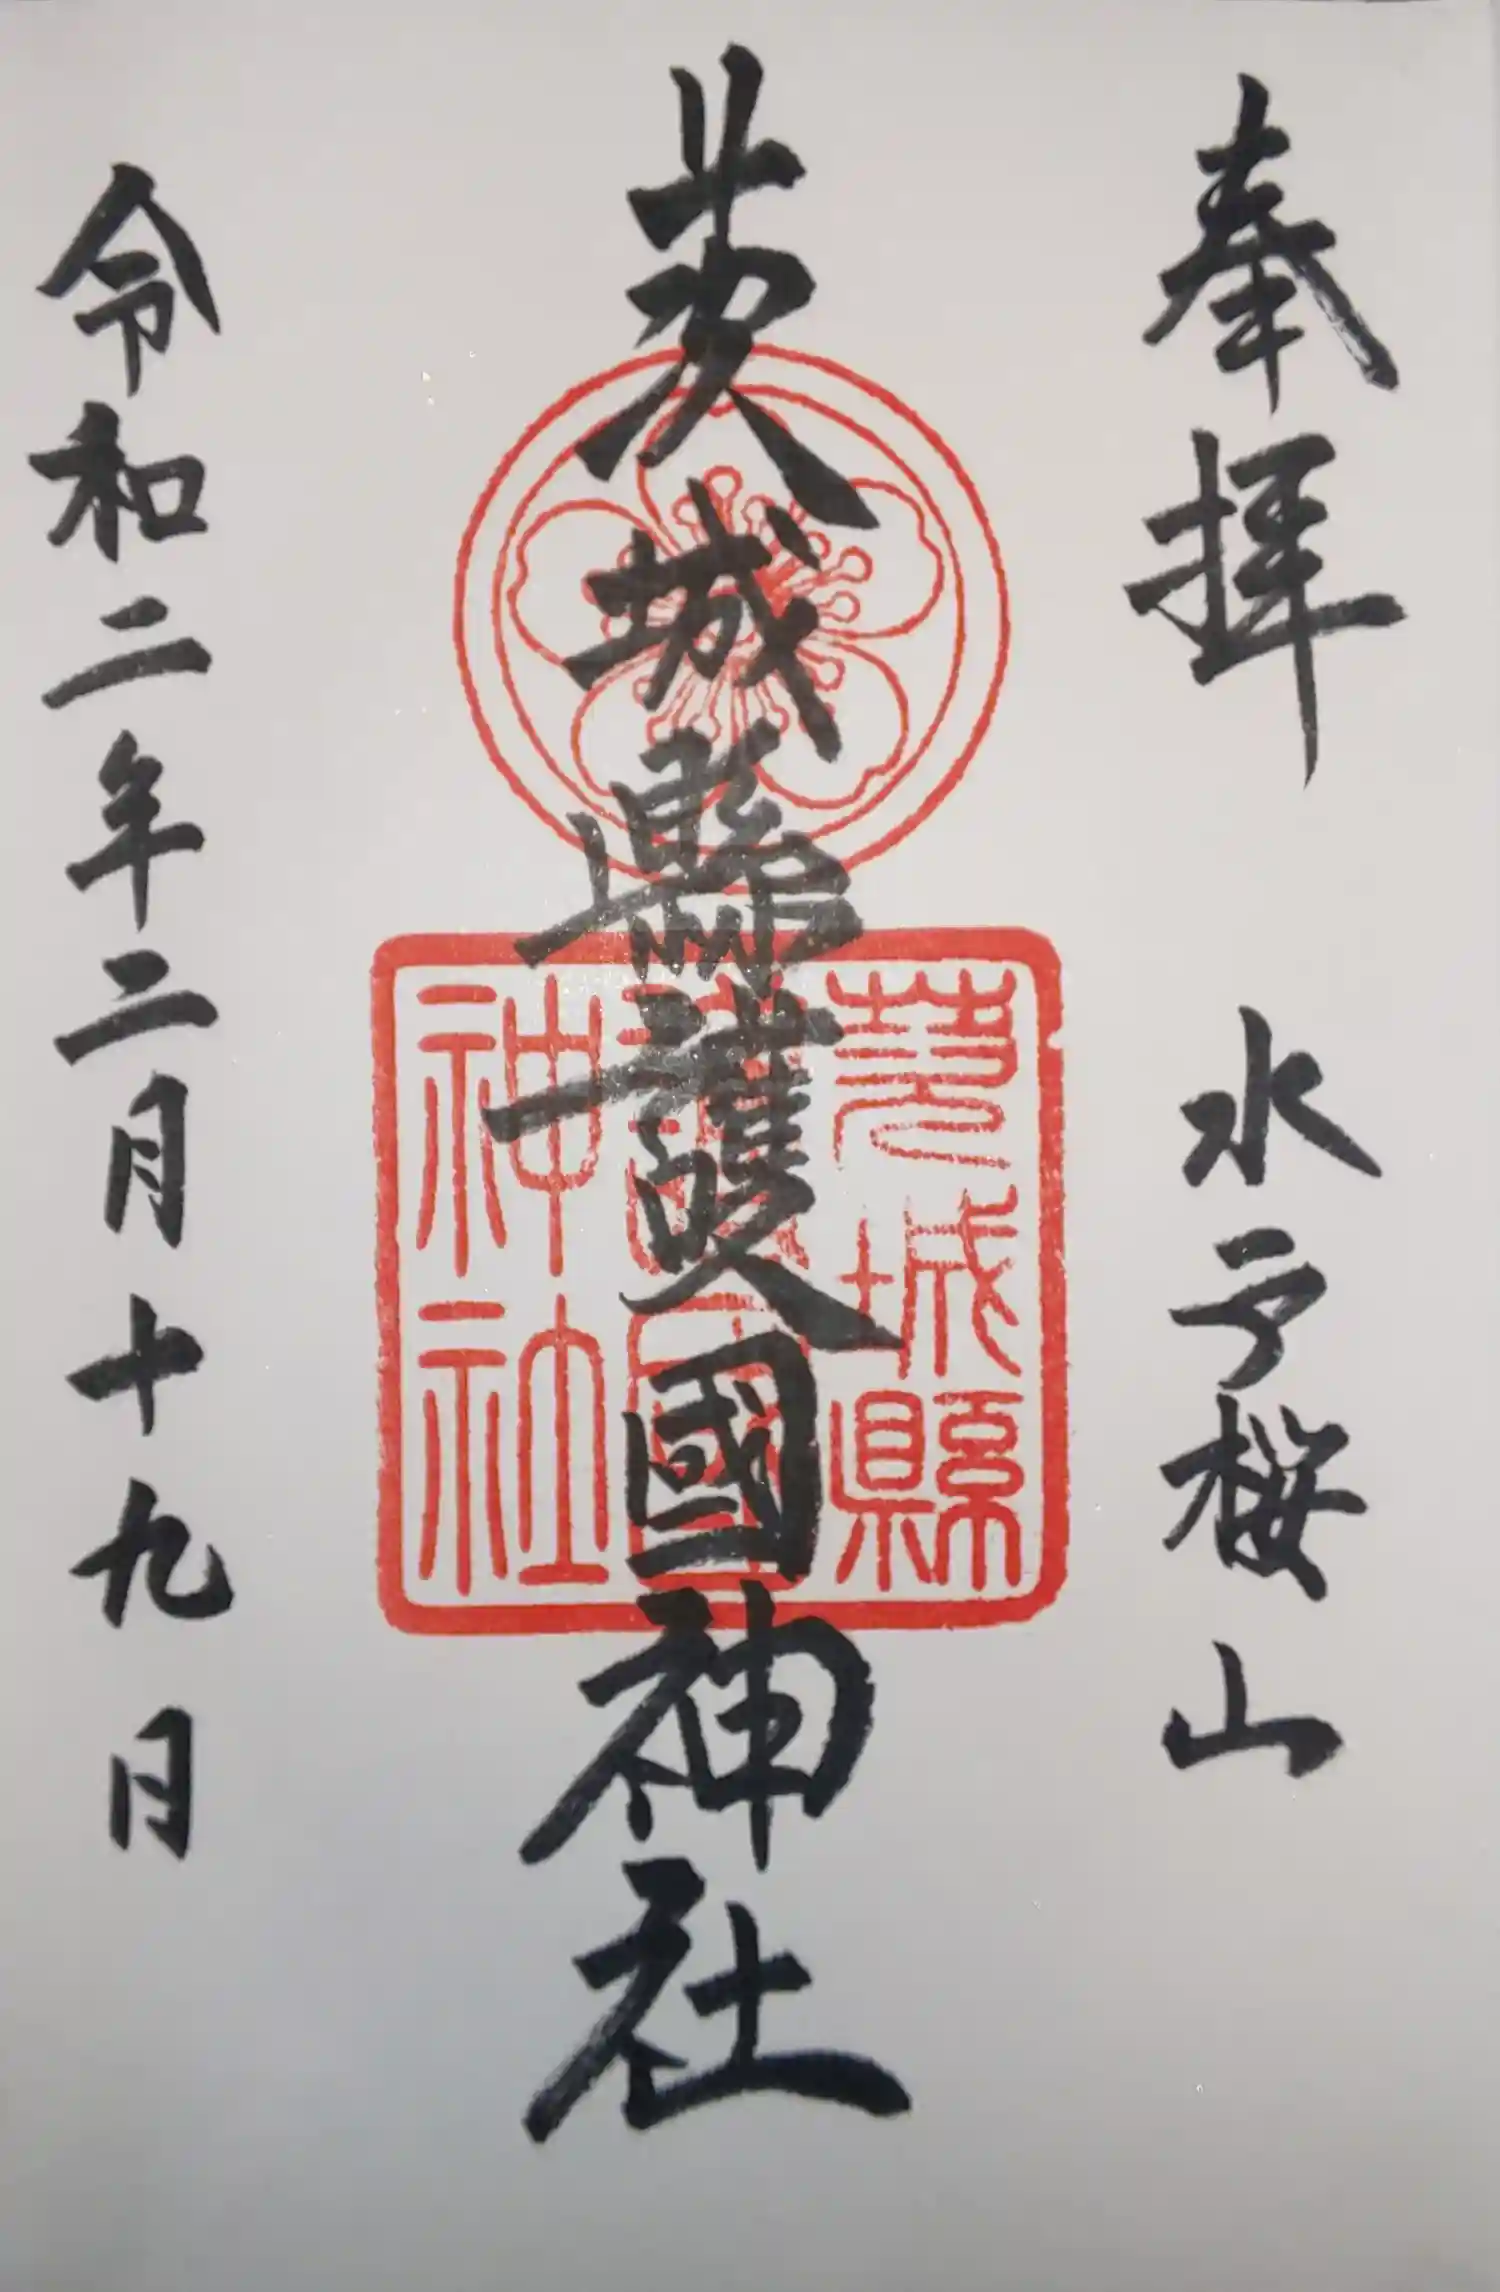 奉拝　水戸桜山
茨城縣護國神社
令和二年二月十九日
茨城縣
護國
神社